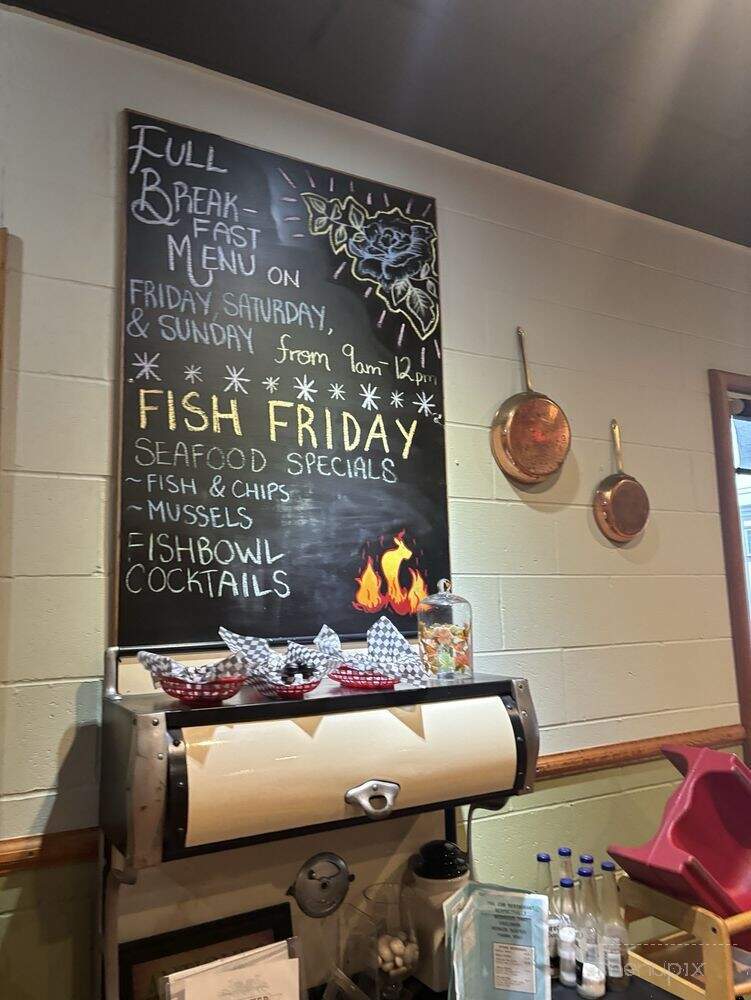 FULL
BREAK-
FAST
MENU ON
FRIDAY, SATURDAY,
& SUNDAY from 9am-12pm
FISH FRIDAY
SEAFOOD SPECIALS
~FISH & CHIPS
~MUSSELS
FISHBOWL
COCKTAILS
menupix